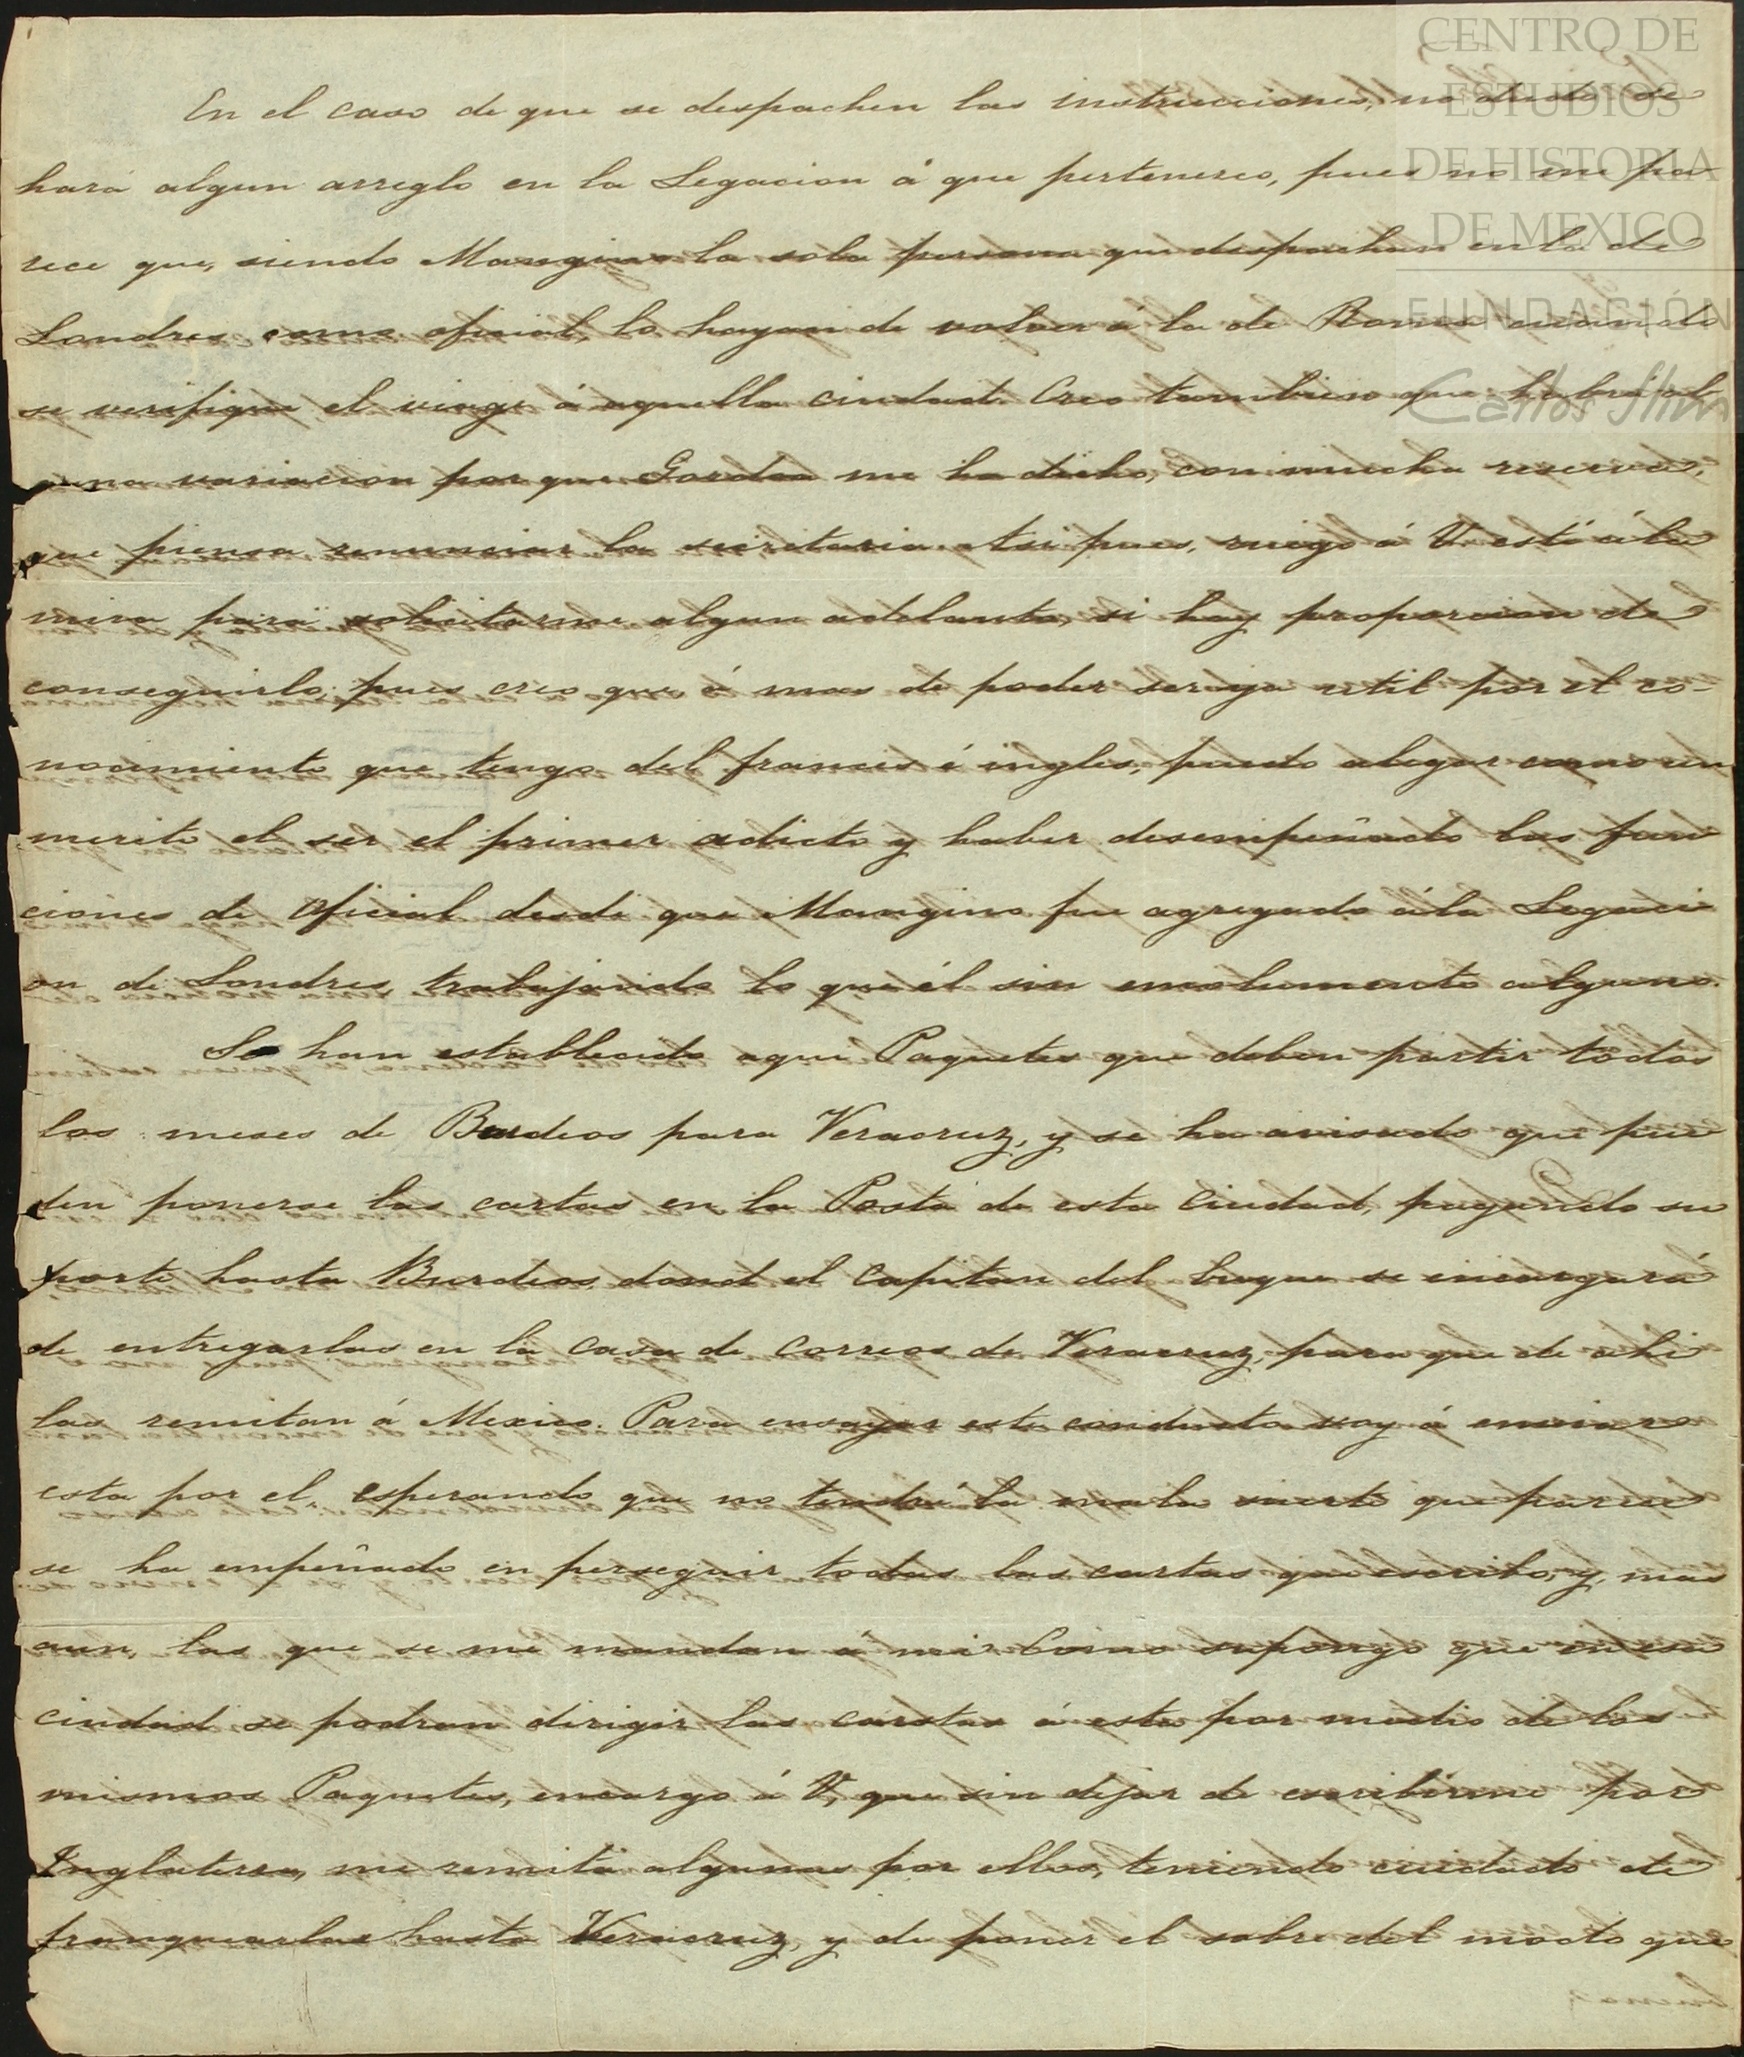 CENTRO DE
ESTUDIOS
DE HISTORIA
DE MEXICO
FUNDACIÓN
Carlos Slim
En el caso de que se despachen las instrucciones, no dudo se
hará algun arreglo en la Legacion á que pertenesco, pues no me pa-
rece que, siendo Mangino la sola persona que despachan en la de
Londres como oficial, lo hayan de volver á la de Roma cuando
se verifique el viage á aquella ciudad. Creo tambien que habrá al
guna variacion por que Gordoa me ha dicho, con mucha reserva,
que piensa renunciar la secretaria. Asi pues, ruego á V. esté á la
mira para solicitarme algun adelanto, si hay proporcion de
conseguirlo; pues creo que á mas de poder ser ya util por el co-
nocimiento que tengo del frances é ingles, puedo alegar como un
merito el ser el primer adicto y haber desempeñado las fun
ciones de oficial desde que Mangino fue agregado á la Legaci
on de Londres, trabajando lo que él sin emolumento alguno.
Se han establecido aqui Paquetes que deben partir todos
los meses de Burdeos para Veracruz, y se ha avisado que pue
den ponerse las cartas en la Posta de esta Ciudad, pagando su
porte hasta Burdeos, dond el Capitan del buque se encargará
de entregarlas en la casa de correos de Veracruz, para que de ahi
las remitan á Mexico. Para ensayar este conducto voy á enviar
esta por el, esperando que no tendrá la mala suerte que parece
se ha empeñado en perseguir todas las cartas que escribo, y, mas
aun, las que se me mandan á mi. Como supongo que en esa
ciudad se podran dirigir las cartas á esta por medio de los
mismos Paquetes, encargo á V, que sin dejar de escribirme por
Inglaterra, me remita algunas por ellos, teniendo cuidado de
franquearlas hasta Veracruz, y de poner el sobre del modo que